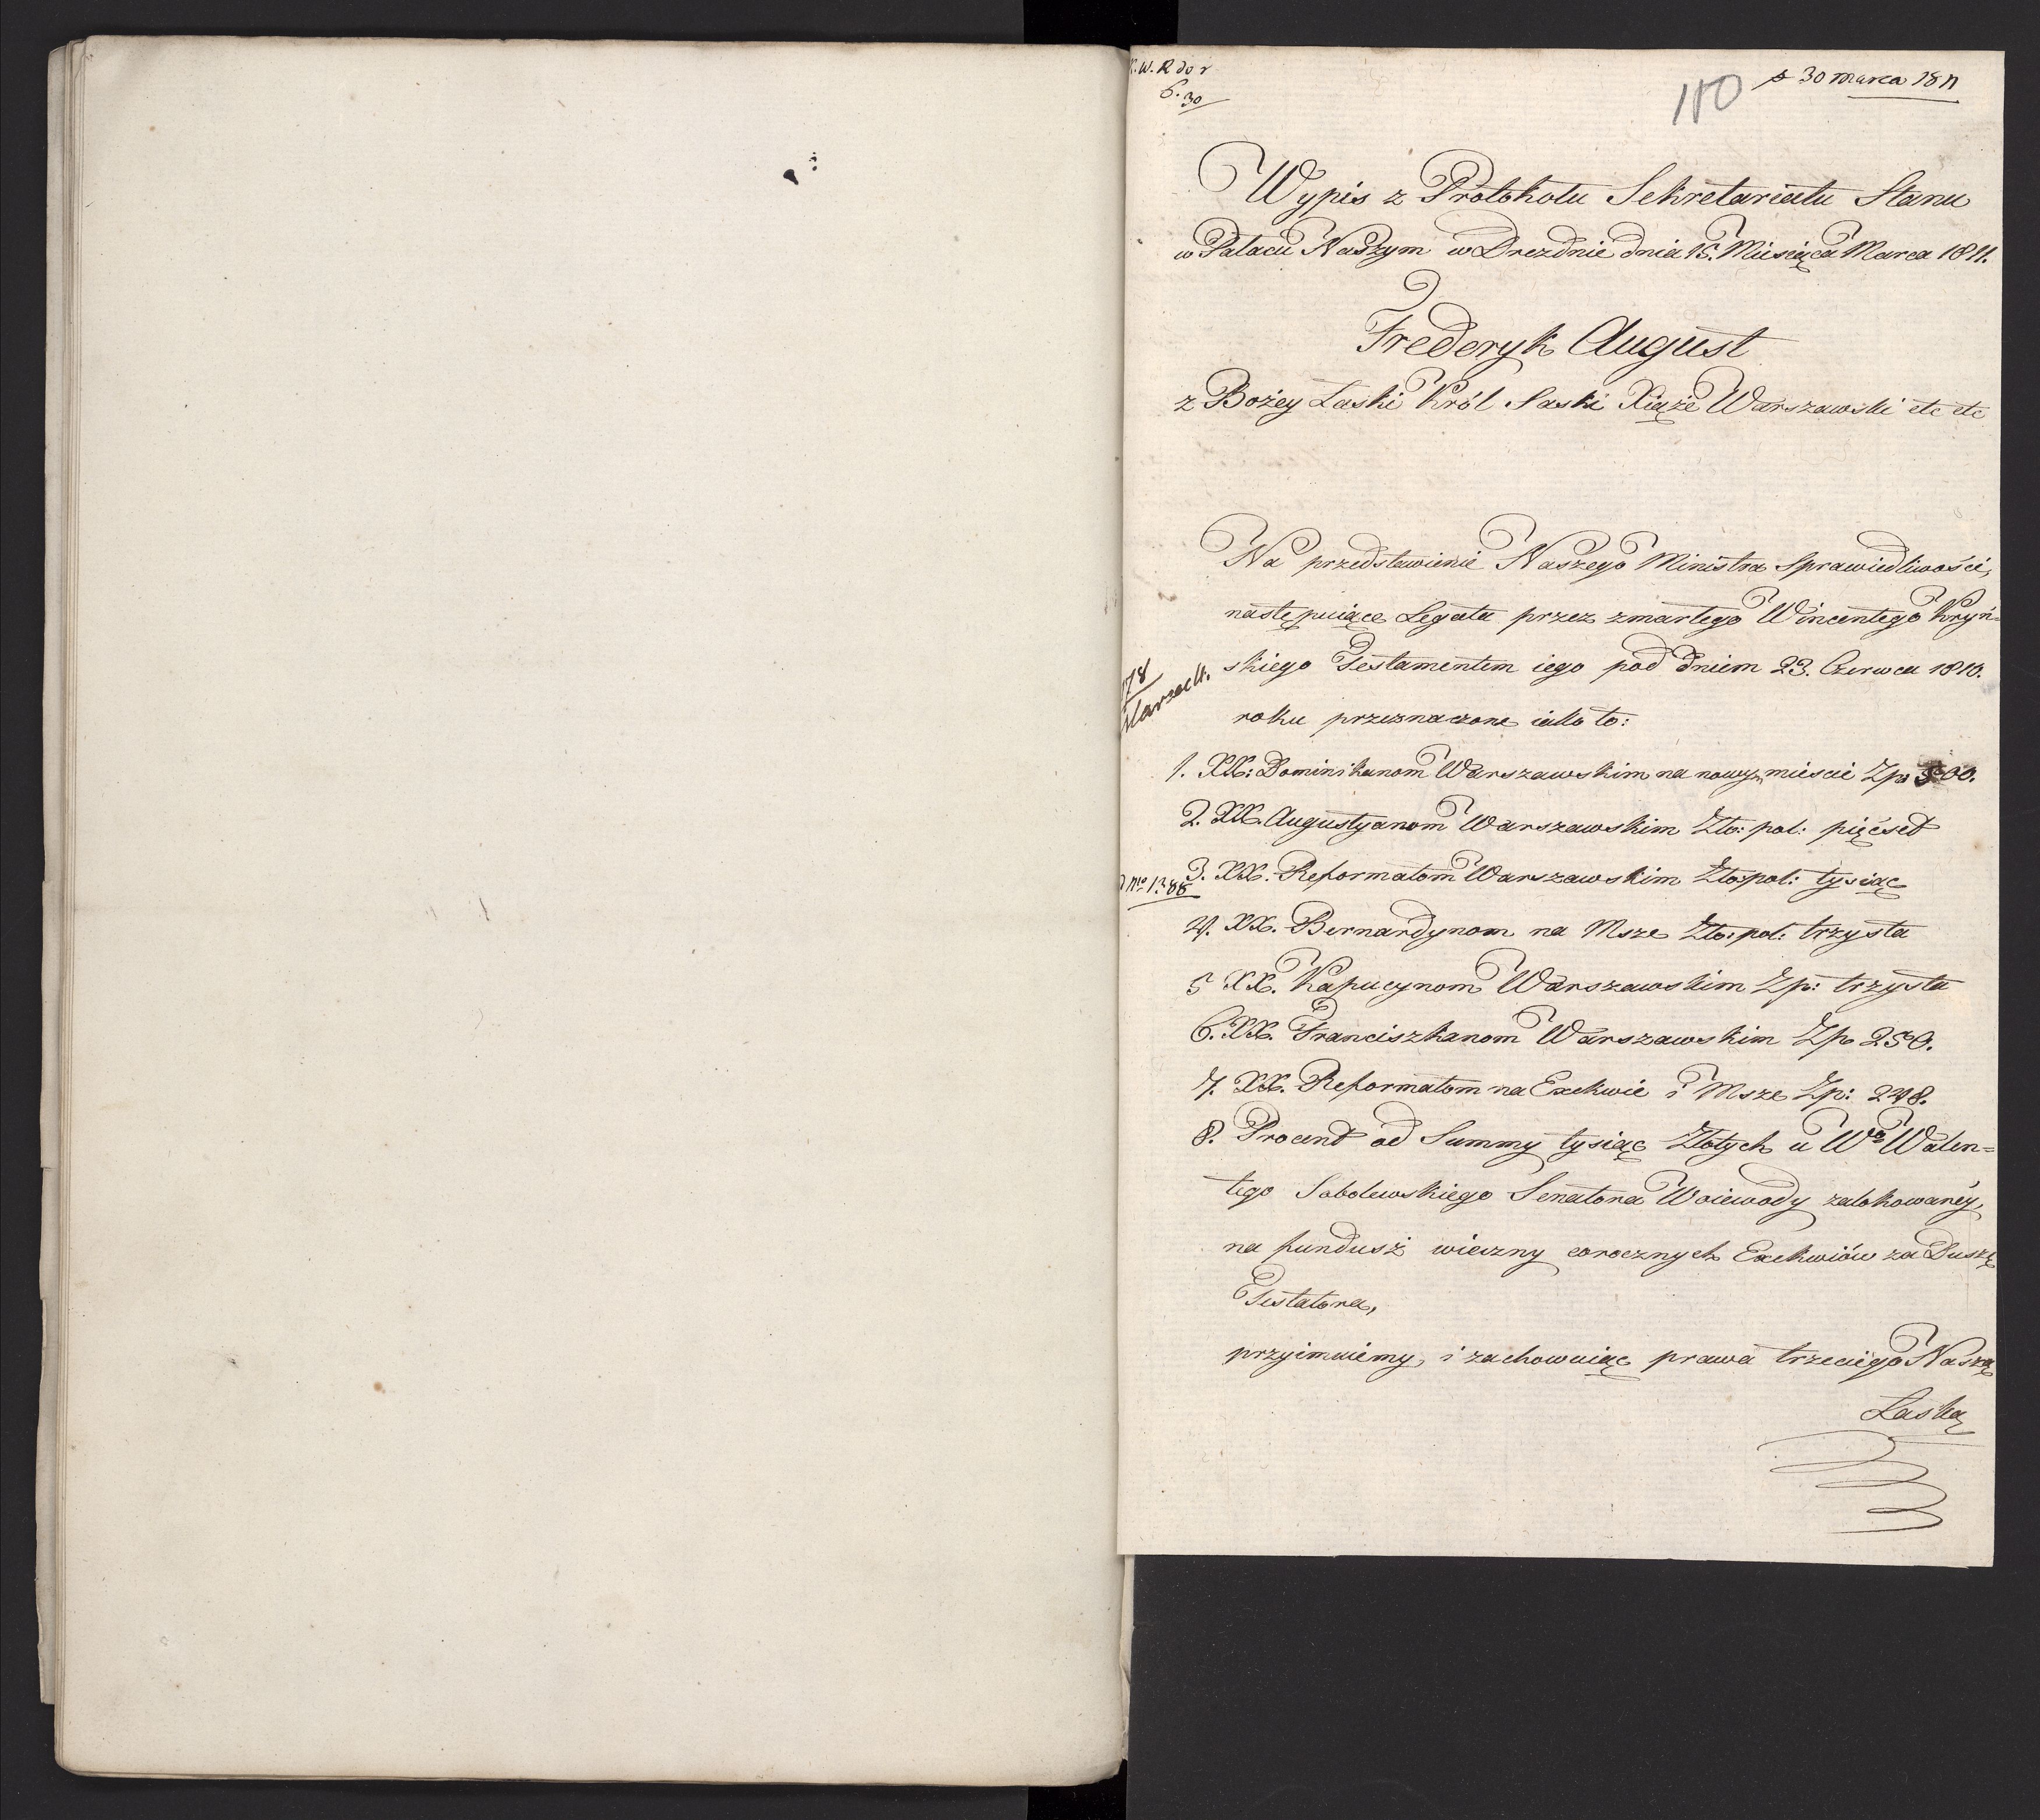 K. W. R do r
6. 30
110
p 30 marca 1811
Wypis z Protokołu Sekretariatu Stanu
w Pałacu Naszym w Dreznie dnia 15. Miesiąca Marca 1811.
Frederyk August
z Bożey Łaski Król Saski Xiąże Warszawski etc etc
Na przedstawienie Naszego Ministra Sprawiedliwości,
następuiące Legata przez zmarłego Wincentego Kryń=
skiego Testamentem iego pod dniem 23. Czerwca 1810.
roku przeznaczone iako to:
1. XX: Dominikanom Warszawskim na nowym mieście Zp 500.
2. XX. Augustyanom Warszawskim Zło: pol: pięćset
3. XX. Reformatom Warszawskim Zło: pol: tysiąc
No 1388
4. XX. Bernardynom na Msze Zło: pol: trzysta
5 XX. Kapucynom Warszawskim Zp: trzysta
6. XX. Franciszkanom Warszawskim Zp 250.
7. XX. Reformatom na Exekwie i Msze Zp: 248.
8. Procent od Summy tysiąc Złotych u Wo Walen=
tego Sobolewskiego Senatora Woiewody zalokowaney,
na fundusz wieczny corocznych Exekwiów za Duszę
Testatora,
przyimuiemy, i zachowuiąc prawa trzeciego Naszą
Łaską